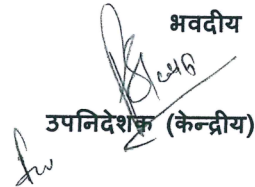 भवदीय
उपनिदेशक (केन्द्रीय)